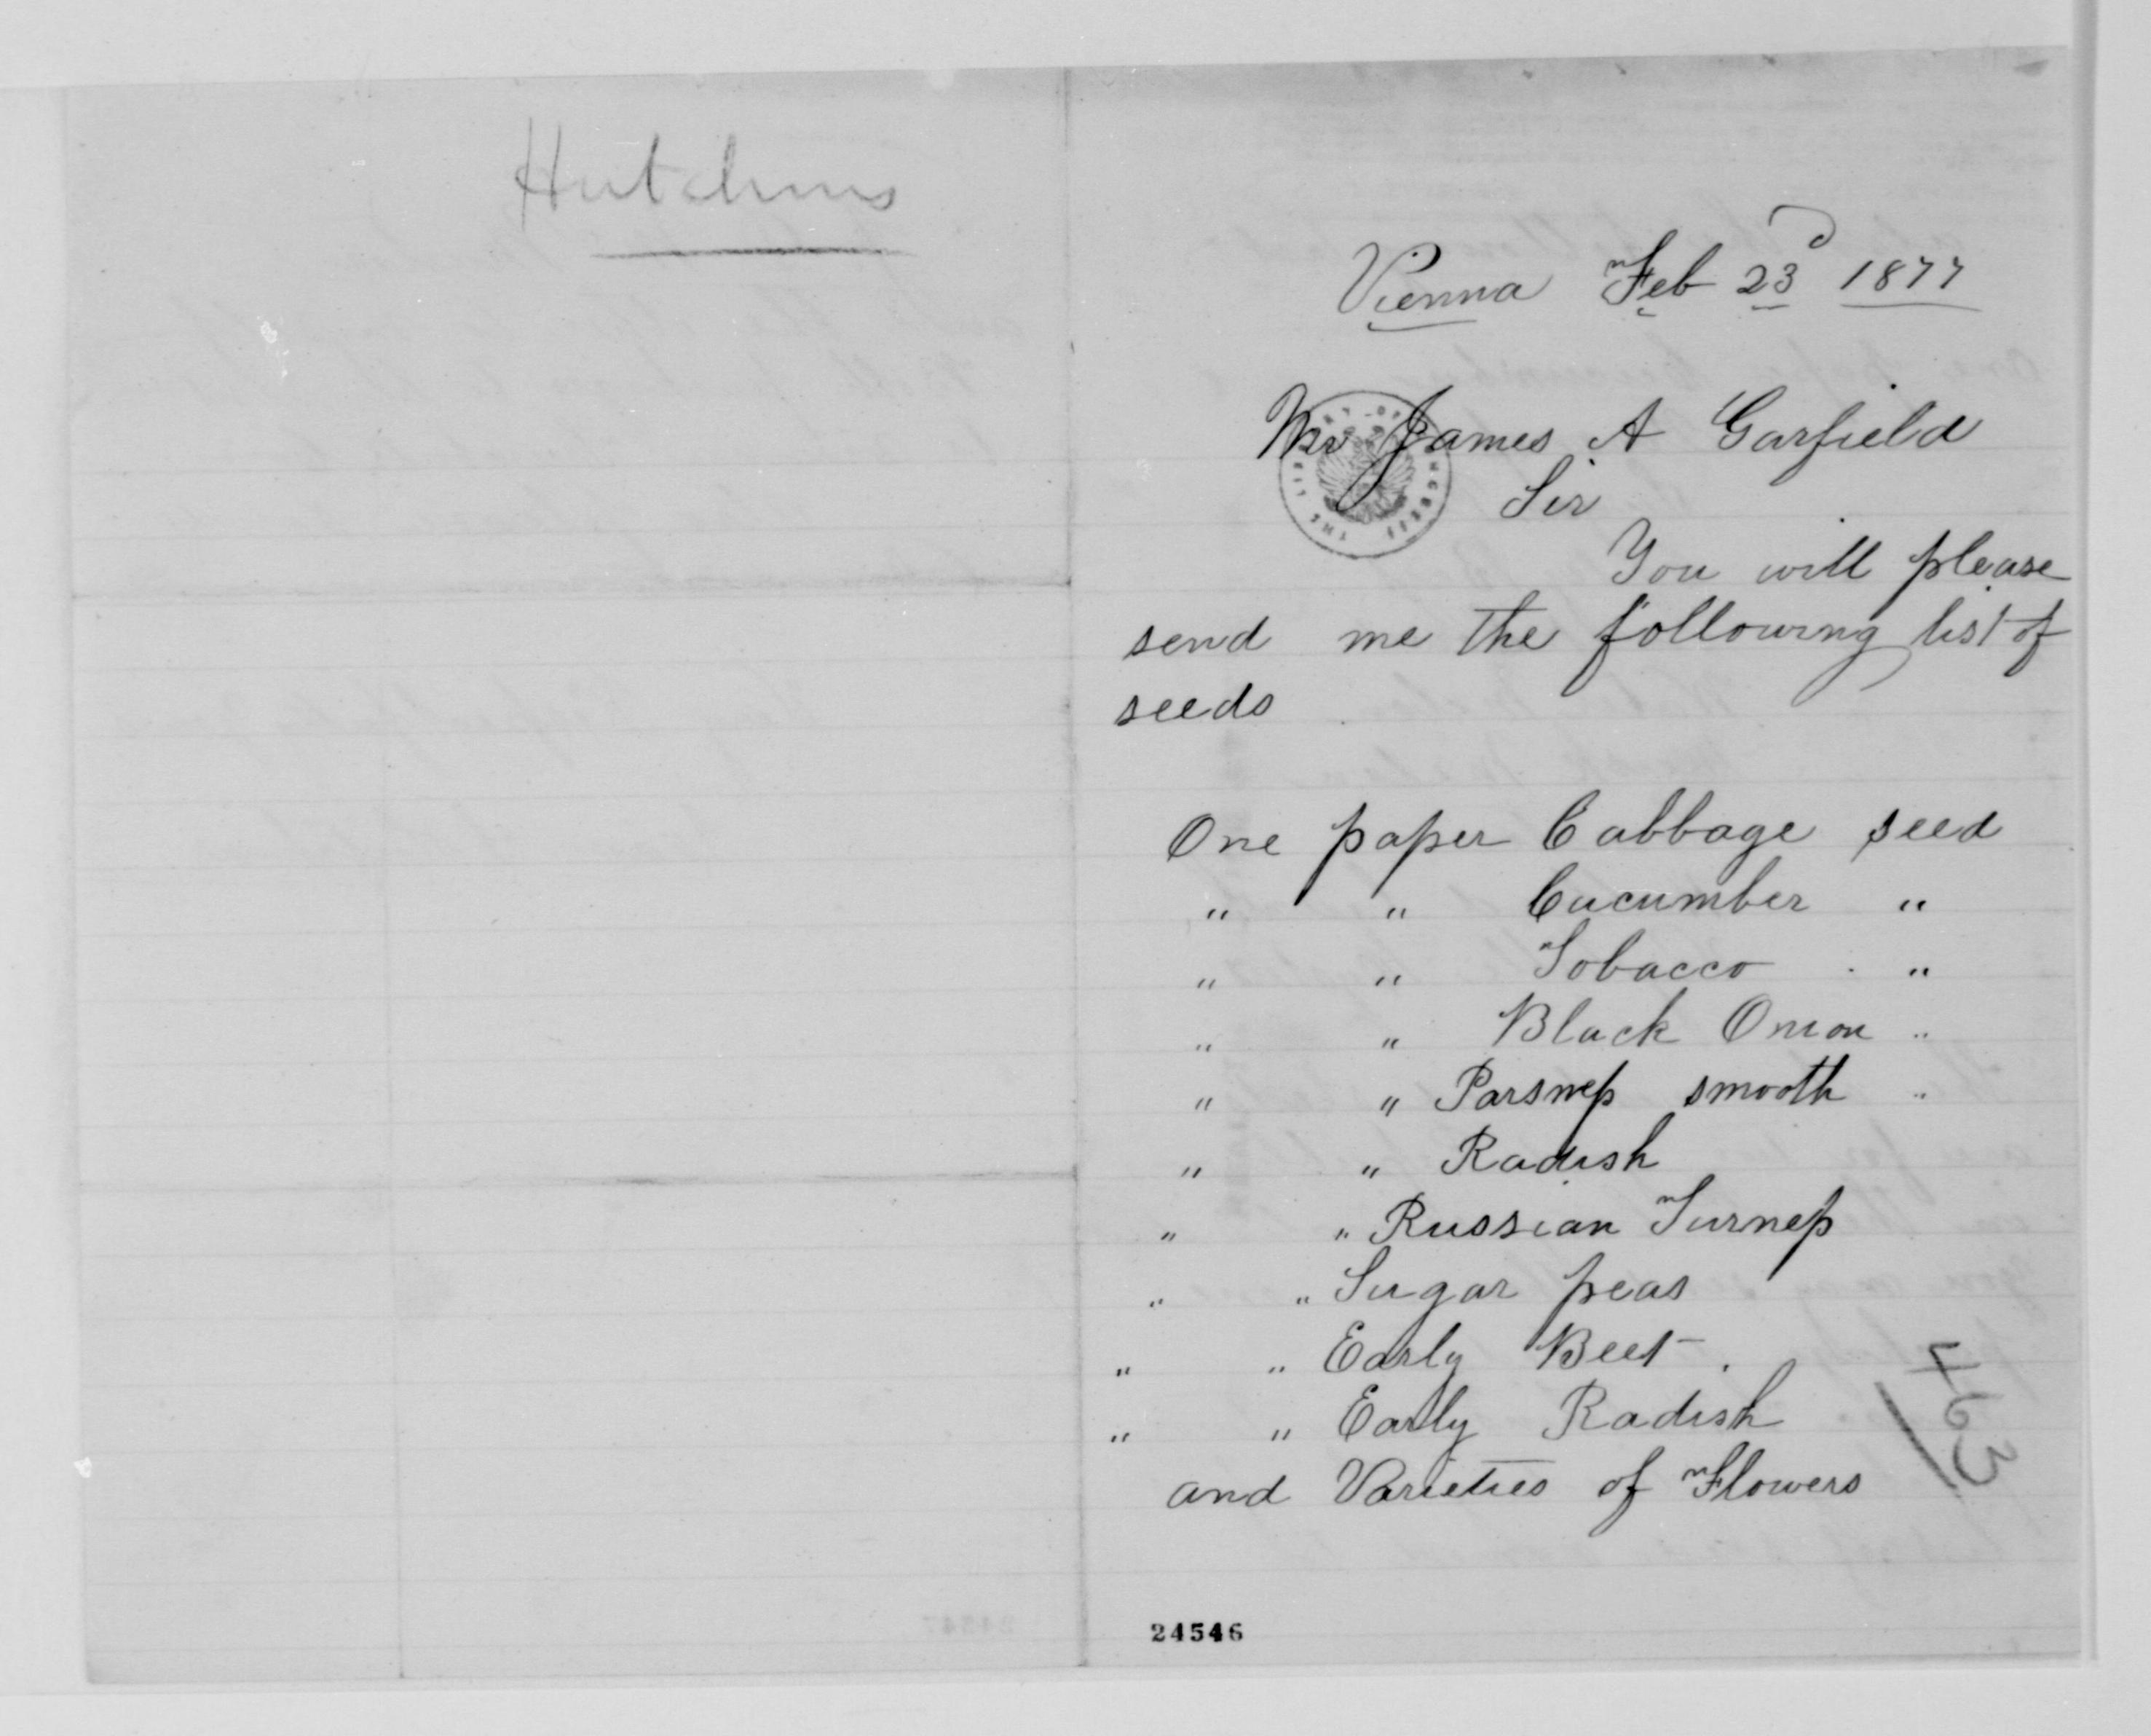 Hutchins
Vienna Feb 23d 1877
Mr James A Garfield
Sir
You will please
send me the following list of
seeds
One paper Cabbage seed
" " Cucumber "
" " Tobacco "
" " Black Onion "
" " Parsnep smooth "
" " Radish
" " Russian Turnep
" " Sugar peas
" " Early Beet
" " Early Radish
and Varieties of Flowers
463
24546
THE LIBRARY OF CONGRESS